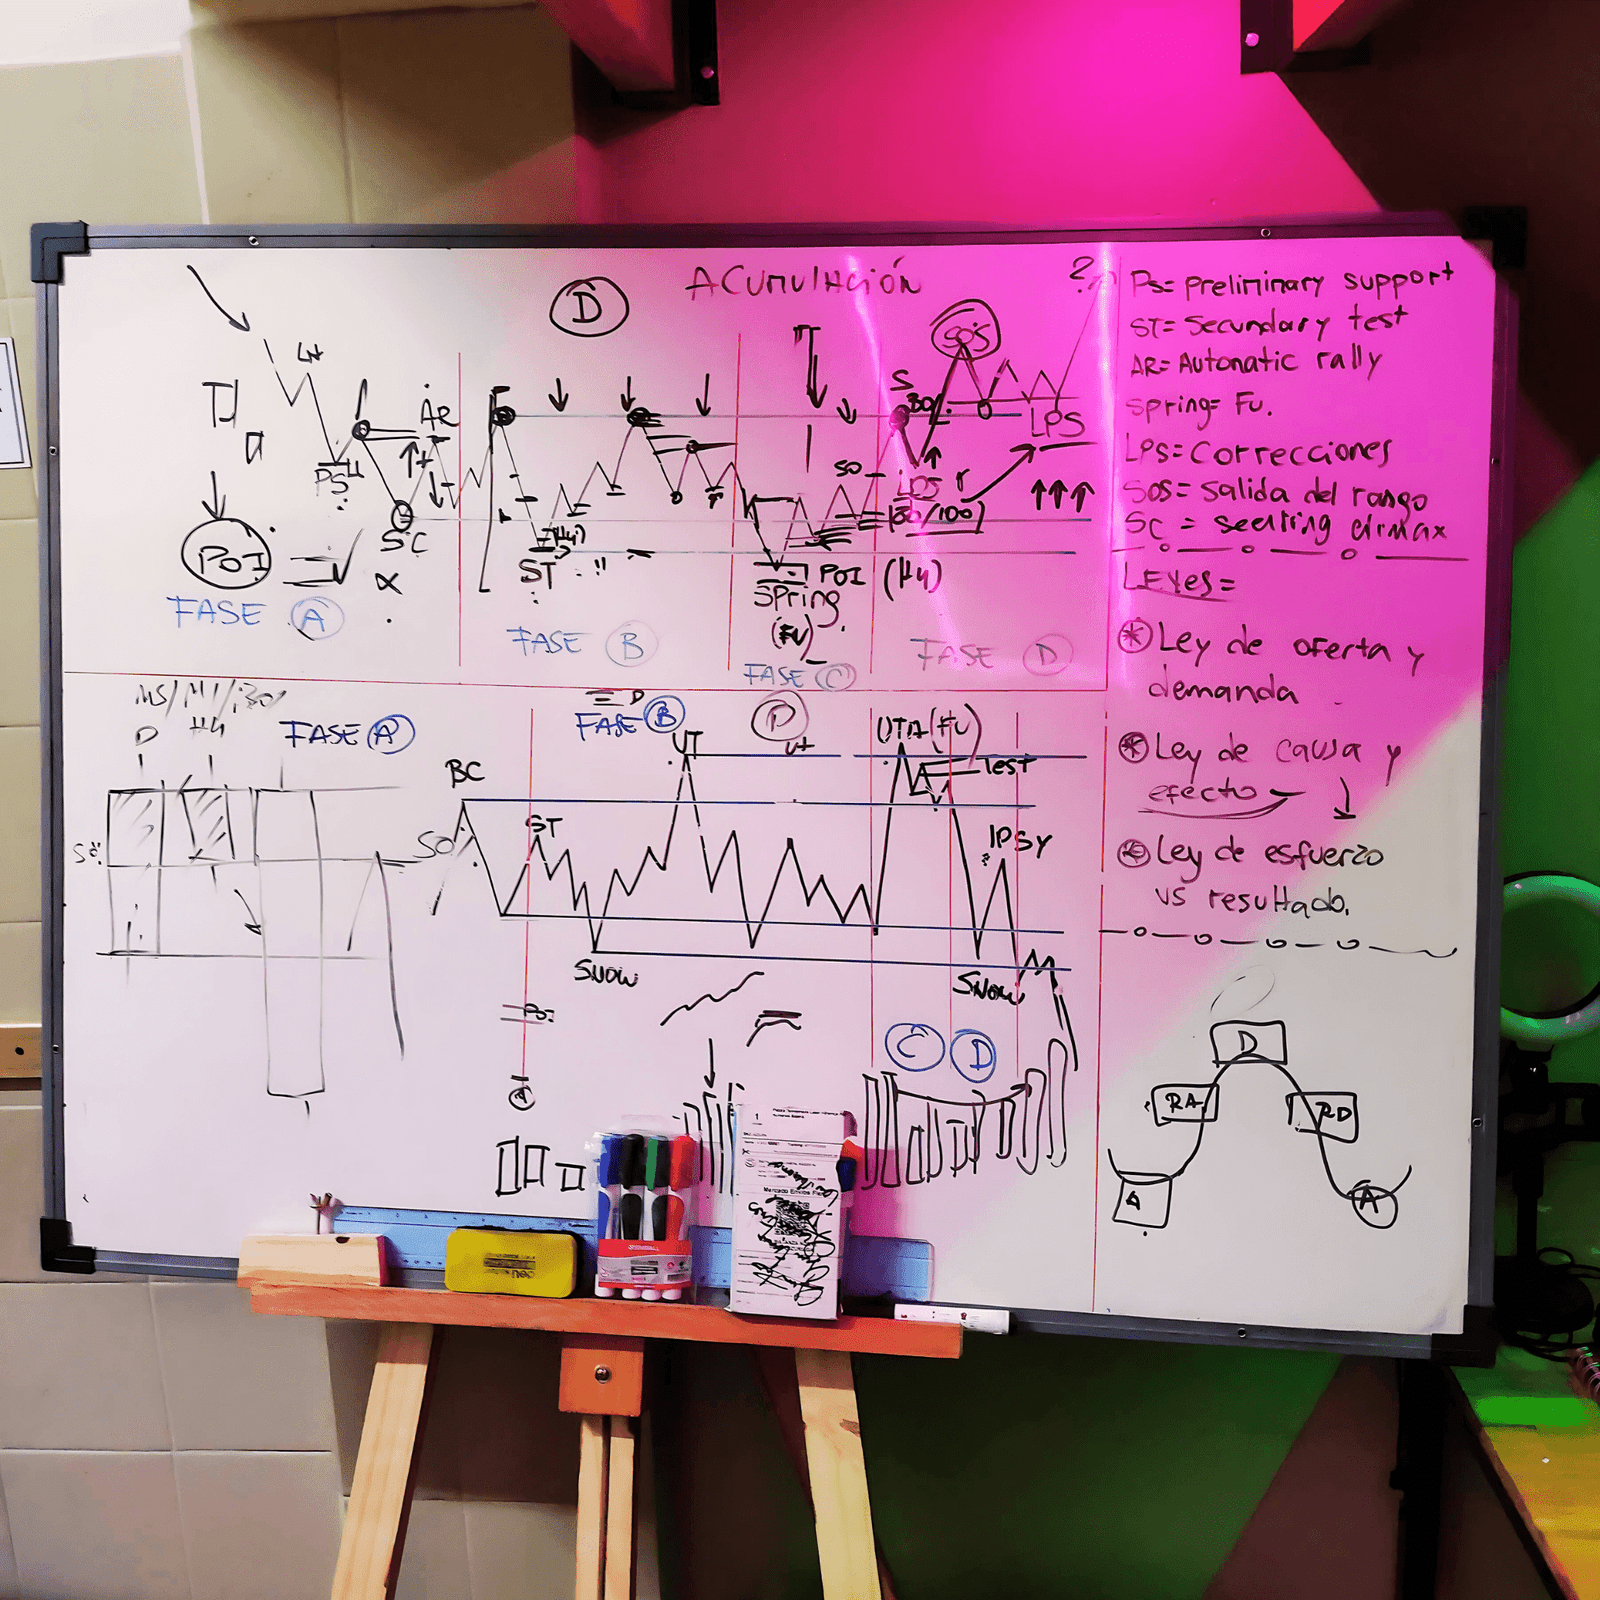 ACUMULACIÓN
D
AR
PS
SC
POI
FASE A
ST
(H4)
FASE B
SO
POI
Spring
(FU)
FASE C
SOS
LPS
LPS
(50/100)
(H4)
FASE D
Ps= preliminary support
ST= Secundary test
AR= Automatic rally
Spring= FU.
LPS= Correcciones
SOS= Salida del rango
SC = seelring climax
LEYes=
Ley de oferta y
demanda
Ley de causa y
efecto
Ley de esfuerzo
vs resultado.
D
H4
FASE A
FASE B
D
BC
SO
ST
UT
UTA (FU)
Test
lPSY
SNOW
SNOW
C
D
D
RA
RD
A